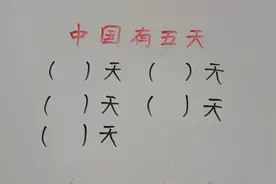 中国有五天
( )天 ( )天
( )天 ( )天
( )天